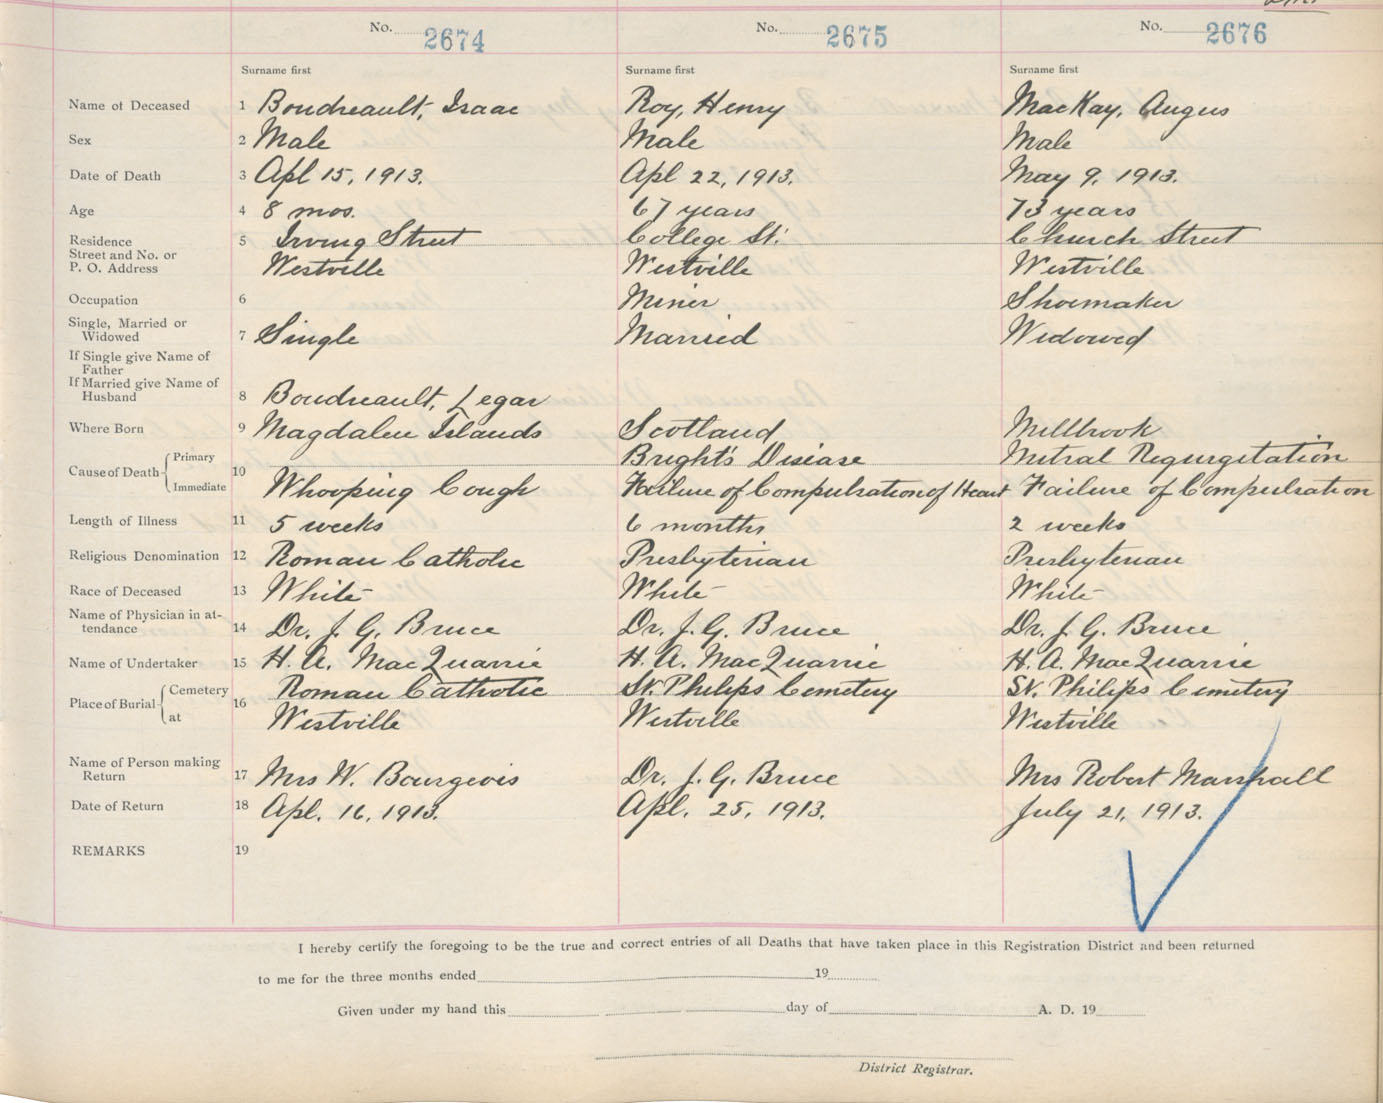 No. 2674 No. 2675 No. 2676
Surname first Surname first Surname first
Name of Deceased 1 Boudreault, Isaac Roy, Henry MacKay, Angus
Sex 2 Male Male Male
Date of Death 3 Apl 15, 1913. Apl 22, 1913. May 9, 1913.
Age 4 8 mos. 67 years 73 years
Residence 5 Irving Street College St. Church Street
Street and No. or
P. O. Address Westville Westville Westville
Occupation 6 Miner Shoemaker
Single, Married or
Widowed 7 Single Married Widowed
If Single give Name of
Father
If Married give Name of
Husband 8 Boudreault, Legar
Where Born 9 Magdalen Islands Scotland Millbrook
Cause of Death Primary 10 Bright's Disease Mitral Regurgitation
Immediate Whooping Cough Failure of Compensation of Heart Failure of Compensation
Length of Illness 11 5 weeks 6 months 2 weeks
Religious Denomination 12 Roman Catholic Presbyterian Presbyterian
Race of Deceased 13 White White White
Name of Physician in at-
tendance 14 Dr. J. G. Bruce Dr. J. G. Bruce Dr. J. G. Bruce
Name of Undertaker 15 H. A. MacQuarrie H. A. MacQuarrie H. A. MacQuarrie
Place of Burial Cemetery 16 Roman Catholic St. Philips Cemetery St. Philips Cemetery
at Westville Westville Westville
Name of Person making
Return 17 Mrs W. Bourgeois Dr. J. G. Bruce Mrs Robert Marshall
Date of Return 18 Apl. 16, 1913. Apl. 25, 1913. July 21, 1913.
REMARKS 19
I hereby certify the foregoing to be the true and correct entries of all Deaths that have taken place in this Registration District and been returned
to me for the three months ended 19
Given under my hand this day of A. D. 19
District Registrar.